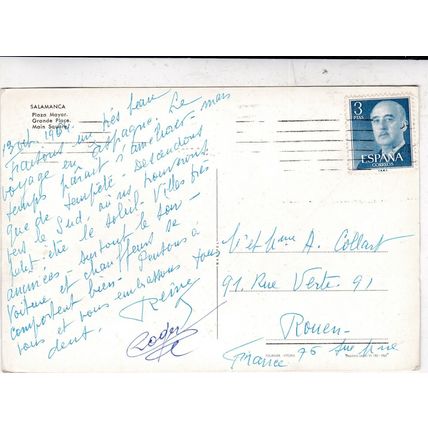 SALAMANCA
Plaza Mayor.
Grande Place.
Main Square.
3
PTAS
ESPAÑA
CORREOS
Faisons un très beau
voyage en Espagne. Le
temps paraît s'améliorer mais
que de tempête. Descendons
vers le Sud, où nous trouverons
peut-être le soleil. Villes très
animées - surtout le soir -
Voiture et chauffeur se
comportent bien. Pensons à
vous et vous embrassons tous
deux.
Reine
Roger
M et Mme A. Collart
91. Rue Verte. 91
Rouen
76 Sne Mme
France